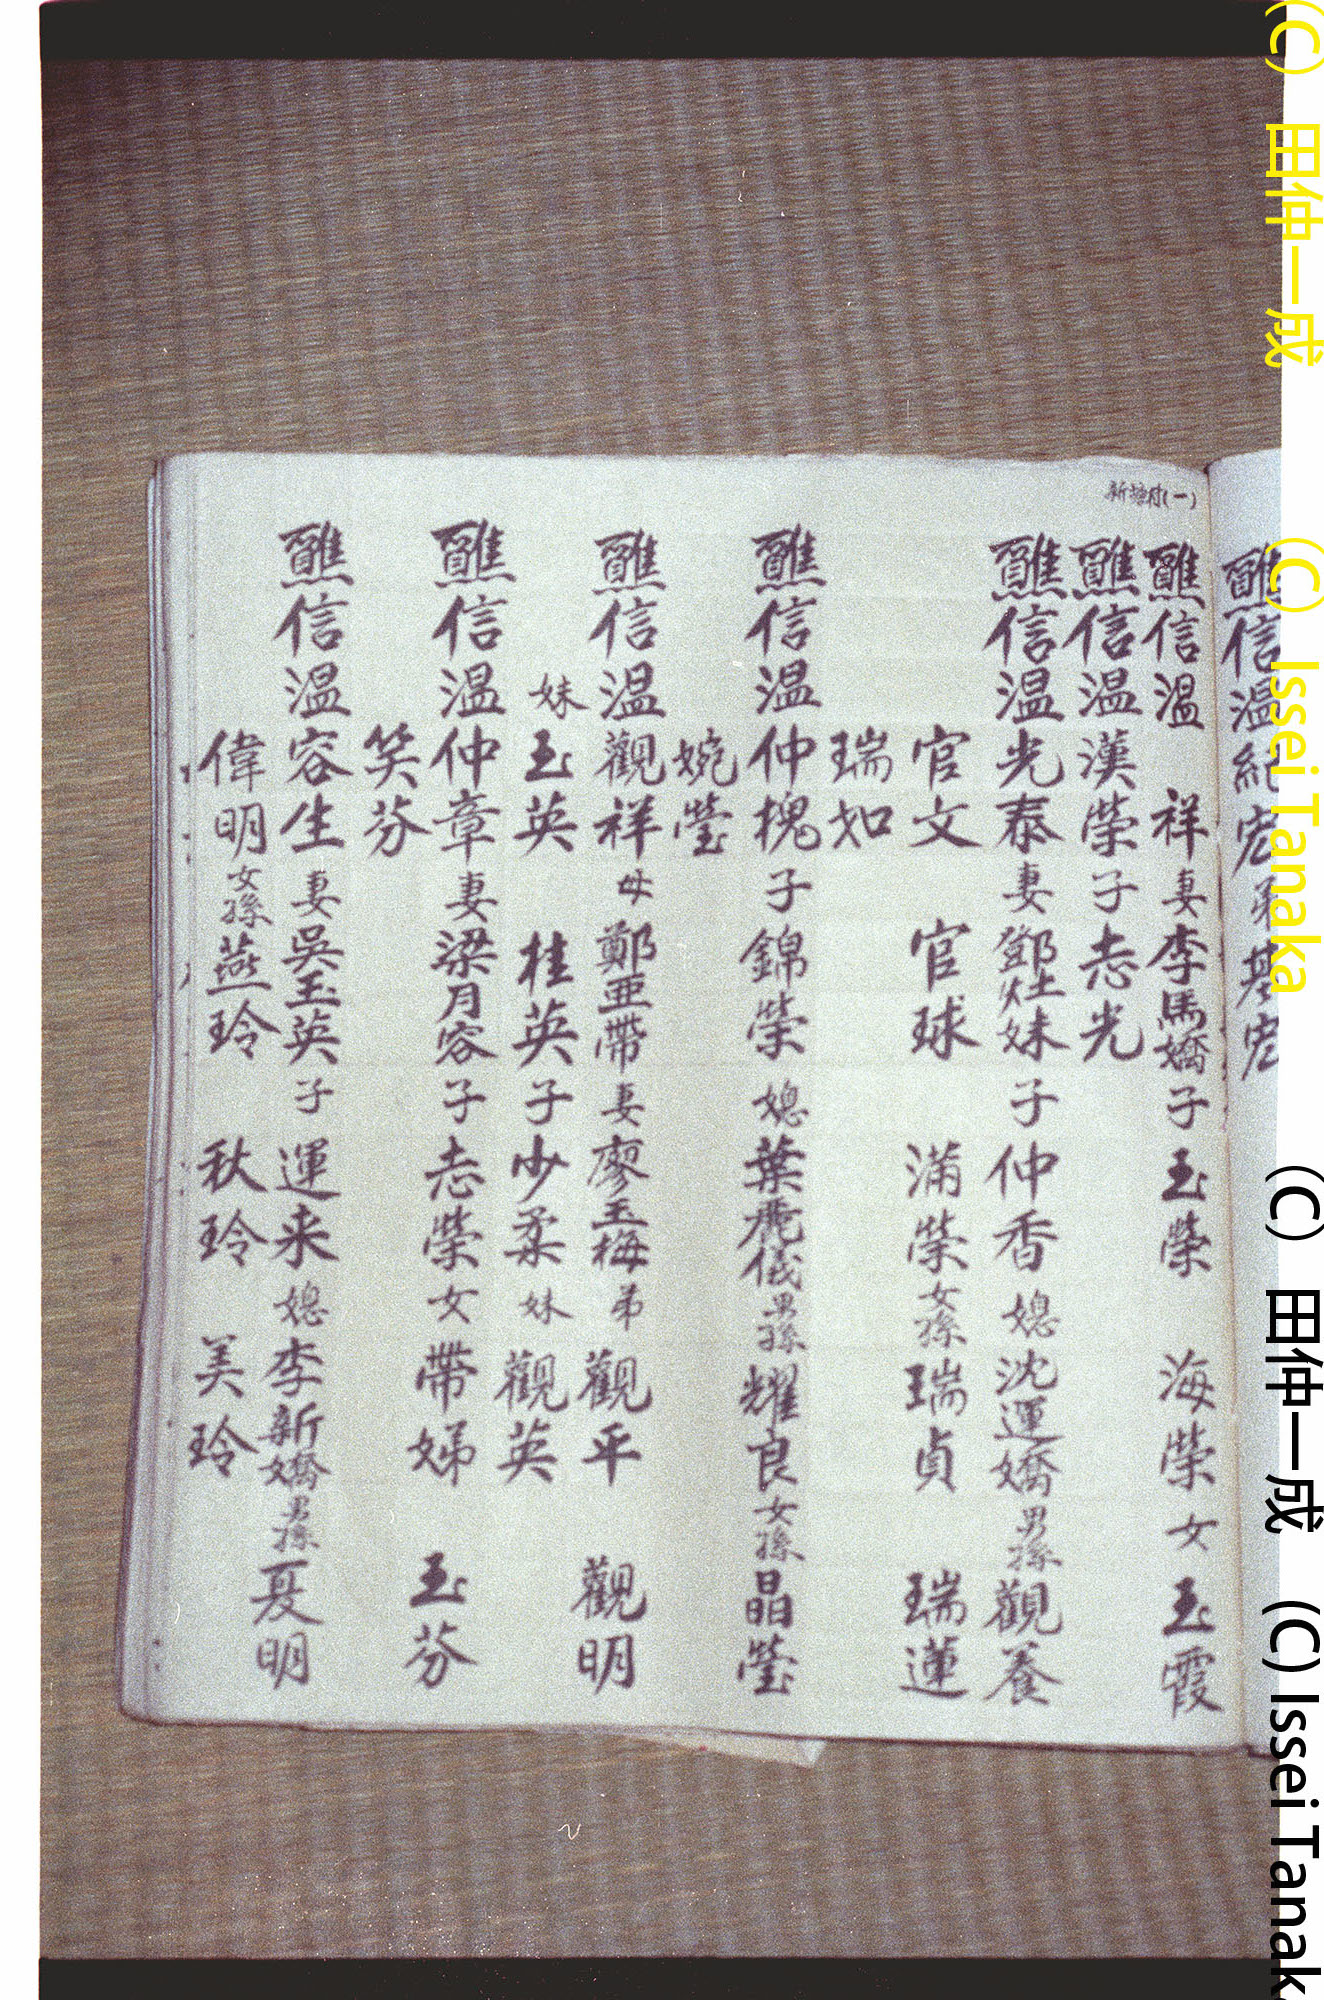 醮信温紀宏弟基宏
新塘村(一)
醮信温 祥妻李馬嬌子玉榮 海榮女玉霞
醮信温漢榮子志光
醮信温光泰妻鄧灶妹子仲香媳沈運嬌男孫觀養
官文 官球 滿榮女孫瑞貞 瑞蓮
瑞如
醮信温仲槐子錦榮媳葉麗儀男孫耀良女孫晶瑩
婉瑩
醮信温觀祥母鄭亜帶妻廖玉梅弟觀平 觀明
妹玉英 桂英子少柔妹觀英
醮信温仲章妻梁月容子志榮女帶娣 玉芬
笑芬
醮信温容生妻吳玉英子運来媳李新嬌男孫夏明
偉明女孫燕玲 秋玲 美玲
(C) 田仲一成 (C) Issei Tanaka
(C) 田仲一成 (C) Issei Tanak